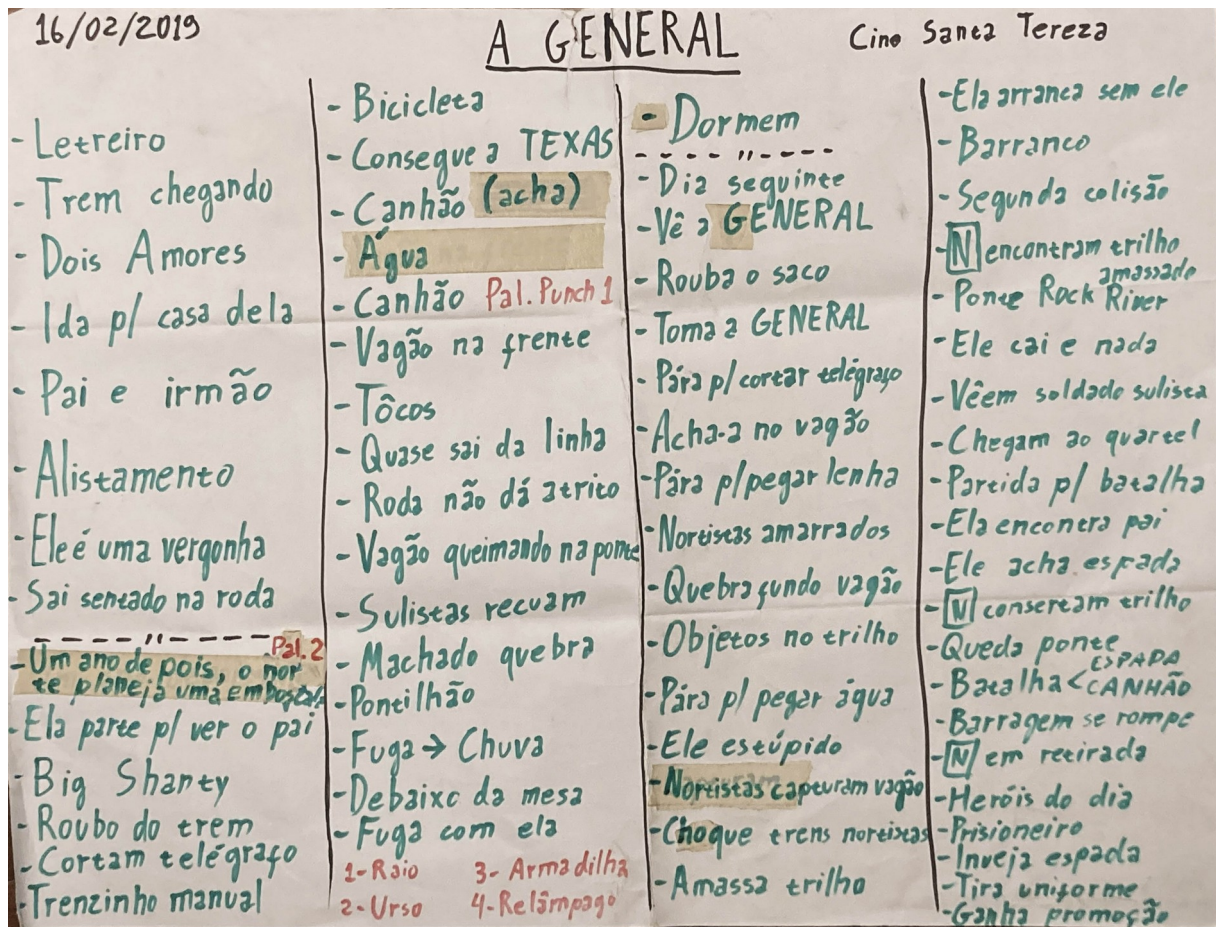 16/02/2019
A GENERAL
Cine Santa Tereza
- Letreiro
- Trem chegando
- Dois Amores
- Ida p/ casa dela
- Pai e irmão
- Alistamento
- Ele é uma vergonha
- Sai sentado na roda
- - - - - " - - - - -
Pal. 2
- Um ano depois, o nor
te planeja uma emboscada
- Ela parte p/ ver o pai
- Big Shanty
- Roubo do trem
- Cortam telégrafo
- Trenzinho manual
- Bicicleta
- Consegue a TEXAS
- Canhão (acha)
- Água
- Canhão Pal. Punch 1
- Vagão na frente
- Tôcos
- Quase sai da linha
- Roda não dá atrito
- Vagão queimando na ponte
- Sulistas recuam
- Machado quebra
- Pontilhão
- Fuga → Chuva
- Debaixo da mesa
- Fuga com ela
1- Raio 3- Armadilha
2- Urso 4- Relâmpago
- Dormem
- - - - " - - - -
- Dia seguinte
- Vê a GENERAL
- Rouba o saco
- Toma a GENERAL
- Pára p/ cortar telégrafo
- Acha-a no vagão
- Pára p/ pegar lenha
- Nortistas amarrados
- Quebra fundo vagão
- Objetos no trilho
- Pára p/ pegar água
- Ele estúpido
- Nortistas capturam vagão
- Choque trens nortistas
- Amassa trilho
- Ela arranca sem ele
- Barranco
- Segunda colisão
- N encontram trilho
amassado
- Ponte Rock River
- Ele cai e nada
- Vêem soldado sulista
- Chegam ao quartel
- Partida p/ batalha
- Ela encontra pai
- Ele acha espada
- N consertam trilho
- Queda ponte
- Batalha < ESPADA
CANHÃO
- Barragem se rompe
- N em retirada
- Heróis do dia
- Prisioneiro
- Inveja espada
- Tira uniforme
- Ganha promoção